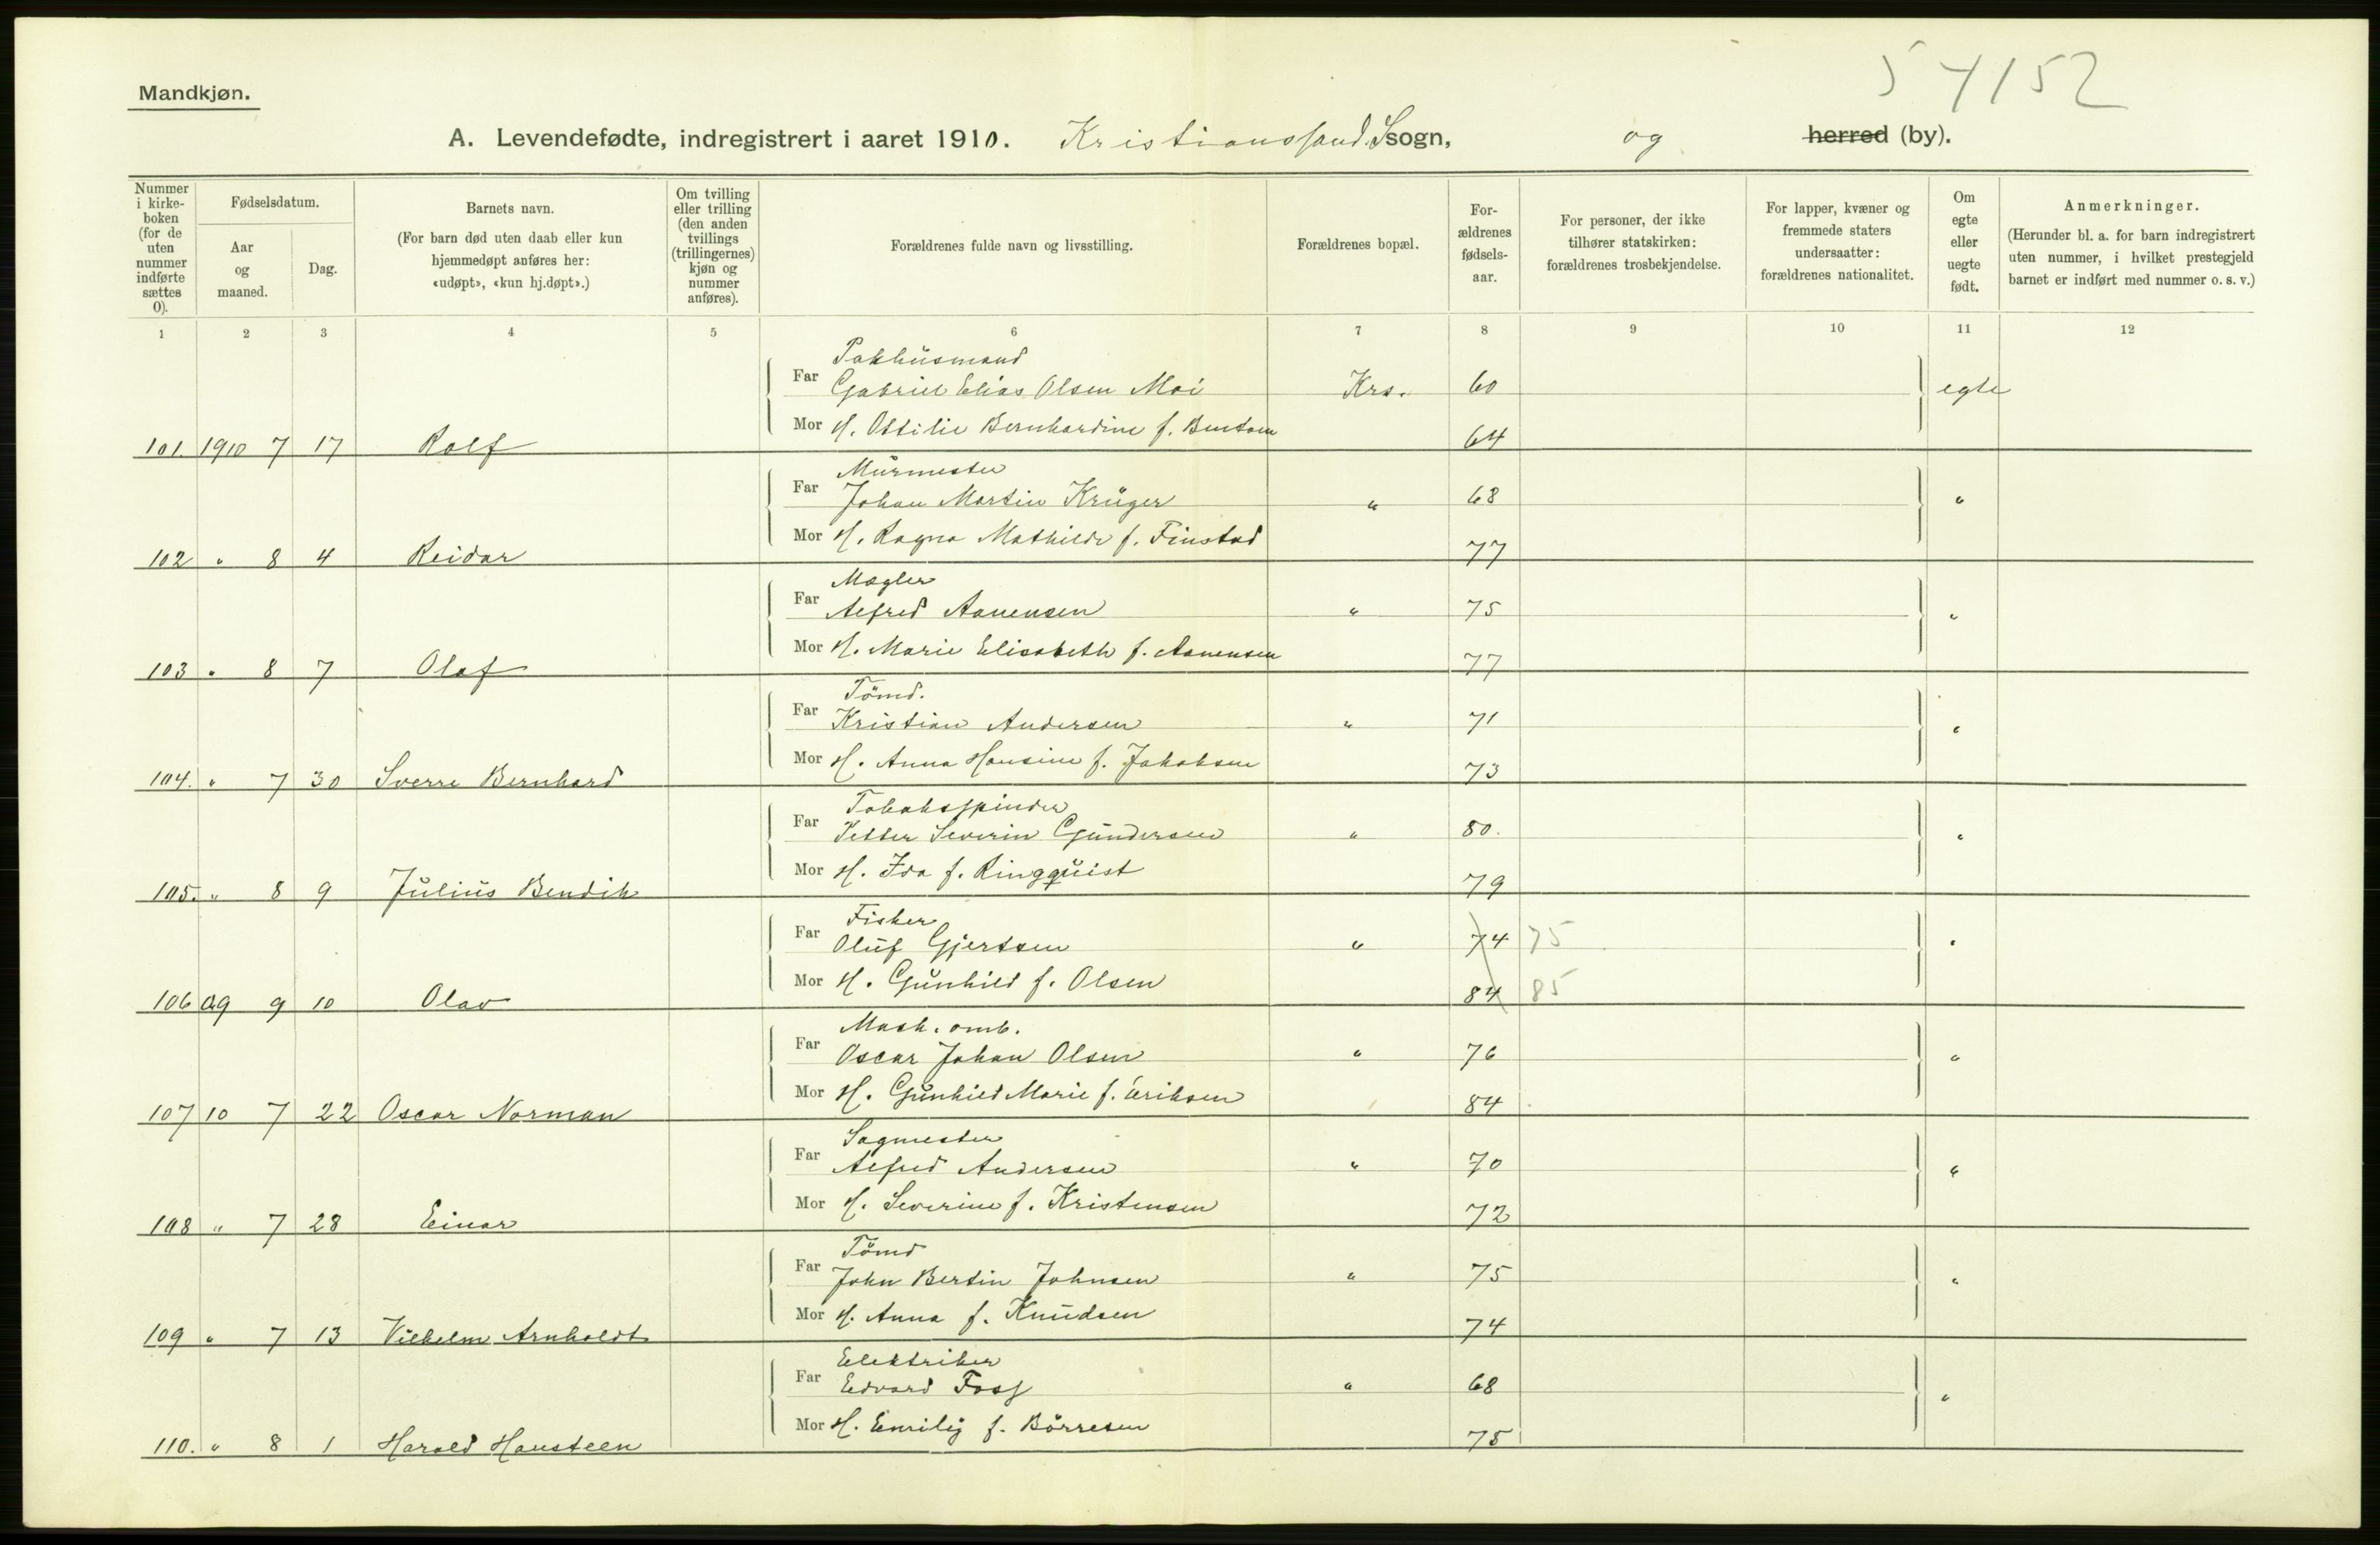 54152
Mandkjøn.
A. Levendefødte, indregistrert i aaret 1910. Kristianssand S sogn, og herred (by).
Nummer i kirke-boken (for de uten nummer indførte sættes 0).
Fødselsdatum.
Aar og maaned.
Dag.
Barnets navn.
(For barn død uten daab eller kun hjemmedøpt anføres her: «udøpt», «kun hj.døpt».)
Om tvilling eller trilling (den anden tvillings (trillingernes) kjøn og nummer anføres).
Forældrenes fulde navn og livsstilling.
Forældrenes bopæl.
For-ældrenes fødsels-aar.
For personer, der ikke tilhører statskirken: forældrenes trosbekjendelse.
For lapper, kvæner og fremmede staters undersaatter: forældrenes nationalitet.
Om egte eller uegte født.
Anmerkninger.
(Herunder bl. a. for barn indregistrert uten nummer, i hvilket prestegjeld barnet er indført med nummer o. s. v.)
1 2 3 4 5 6 7 8 9 10 11 12
Pakhüsmand
Far Gabriel Elias Olsen Moi Krs. 60 egte
Mor H. Ottilie Bernhardine f. Bentsen 64
101. 1910 7 17 Rolf
Mürmester
Far Johan Martin Krüger " 68 "
Mor H. Ragna Mathilde f. Finstad 77
102 " 8 4 Reidar
Mægler
Far Alfred Aanensen " 75 "
Mor H. Marie Elisabeth f. Aanensen 77
103 " 8 7 Olaf
Tömd.
Far Kristian Andersen " 71 "
Mor H. Anna Hansine f. Jakobsen 73
104. " 7 30 Sverre Bernhard
Tobaksspinder
Far Petter Severin Gündersen " 80. "
Mor H. Ida f. Ringqüist 79
105. " 8 9 Jülius Bendik
Fisker
Far Olüf Gjertsen " 74 75 "
Mor H. Günhild f. Olsen 84 85
106 09 9 10 Olav
Mask. omb.
Far Oscar Johan Olsen " 76 "
Mor H. Günhild Marie f. Eriksen 84
107 10 7 22 Oscar Norman
Sagmester
Far Alfred Andersen " 70 "
Mor H. Severine f. Kristensen 72
108 " 7 28 Einar
Tömd
Far John Bertin Johnsen " 75 "
Mor H. Anna f. Knüdsen 74
109 " 7 13 Vilhelm Arnholdt
Elektriker
Far Edvard Foss " 68 "
Mor H. Emilig f. Börresen 75
110. " 8 1 Harald Hansteen